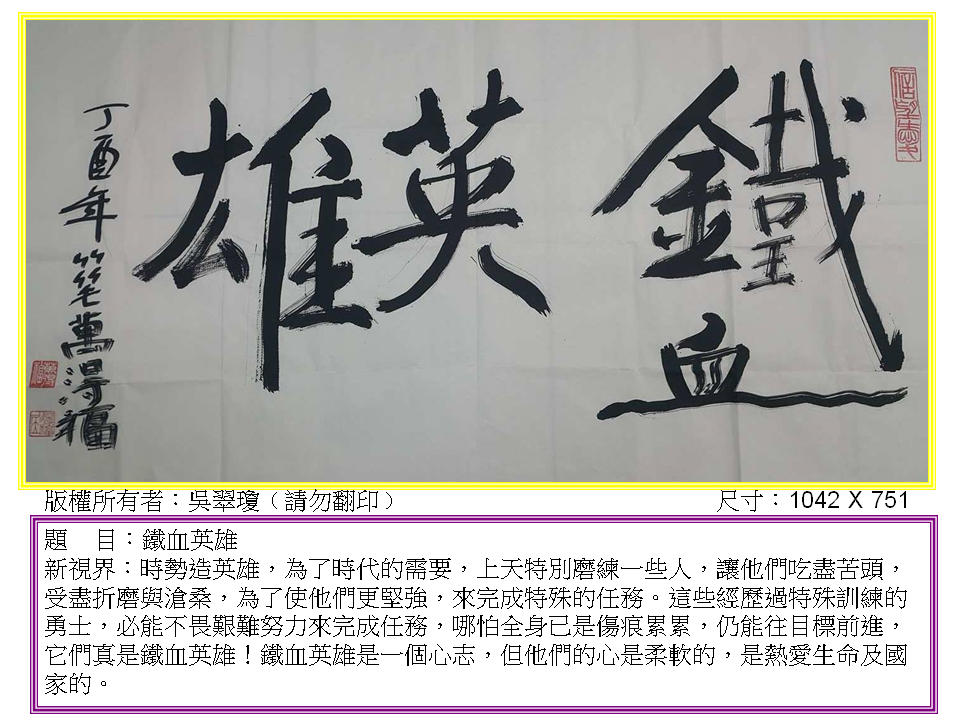 鐵血英雄
丁酉年笔萬得福
版權所有者：吳翠瓊（請勿翻印）
尺寸：1042 X 751
題　目：鐵血英雄
新視界：時勢造英雄，為了時代的需要，上天特別磨練一些人，讓他們吃盡苦頭，
受盡折磨與滄桑，為了使他們更堅強，來完成特殊的任務。這些經歷過特殊訓練的
勇士，必能不畏艱難努力來完成任務，哪怕全身已是傷痕累累，仍能往目標前進，
它們真是鐵血英雄！鐵血英雄是一個心志，但他們的心是柔軟的，是熱愛生命及國
家的。